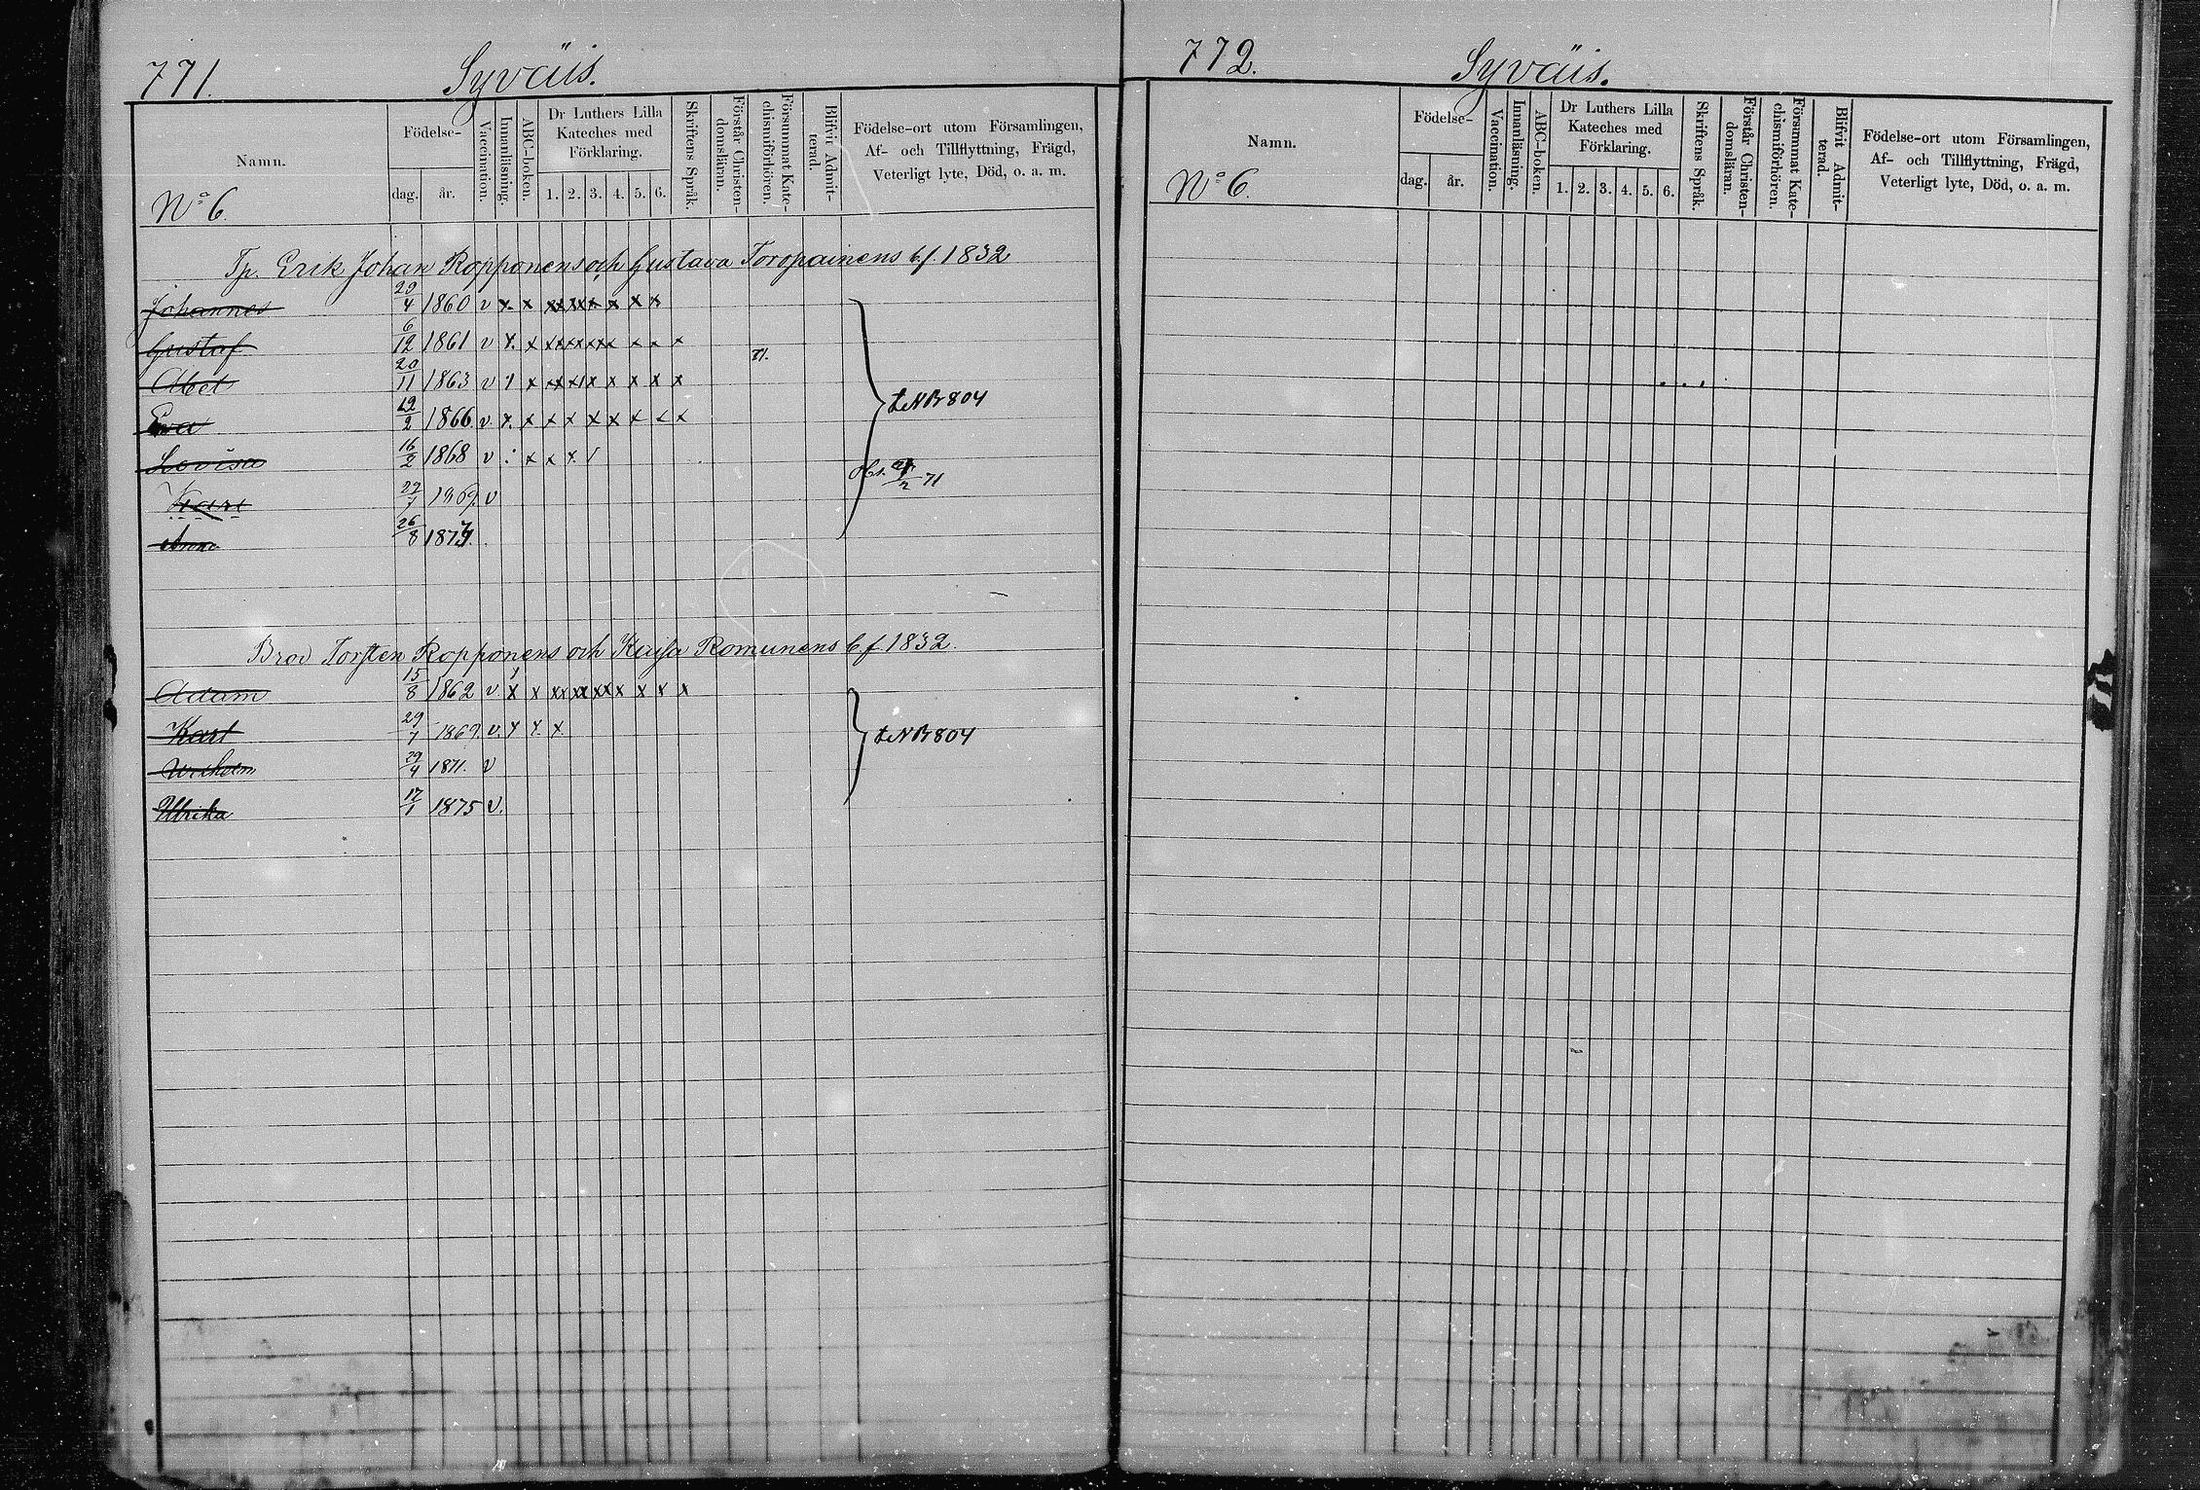 771. Syväis.
Namn. Födelse- dag. år. Vaccination. Innanläsning. ABC-boken. Dr Luthers Lilla Kateches med Förklaring. 1. 2. 3. 4. 5. 6. Skriftens Språk. Förstår Christen-domsläran. Försummat Kate-chismiförhören. Blifvit Admit-terad. Födelse-ort utom Församlingen, Af- och Tillflyttning, Frägd, Veterligt lyte, Död, o. a. m.
No 6.
Tp. Erik Johan Ropponens och Gustava Toropainens bf. 1832
Johannes 4 1860 v x x x x x x x x
Gustaf 6/12 1861 v x x x x x x x x x
71.
Abel 20/11 1863 v x x x x x x x x
t. NB 804
Eva 2 1866. v. x x x x x x x x x
Lovisa 16/2 1868 v x x x
71
1869. v
Anna 26/8 187
Brod Torsten Ropponens och Kaisa Romunens bf. 1832.
Adam 15/8 1862 v. x x x x x x x x x
Karl 29/1 1869. v. x x x
t. NB 804
Wilhelm 29/4 1871. v
Ulrika 17/1 1875 v.
772. Syväis.
Namn. Födelse- dag. år. Vaccination. Innanläsning. ABC-boken. Dr Luthers Lilla Kateches med Förklaring. 1. 2. 3. 4. 5. 6. Skriftens Språk. Förstår Christen-domsläran. Försummat Kate-chismiförhören. Blifvit Admit-terad. Födelse-ort utom Församlingen, Af- och Tillflyttning, Frägd, Veterligt lyte, Död, o. a. m.
No 6.